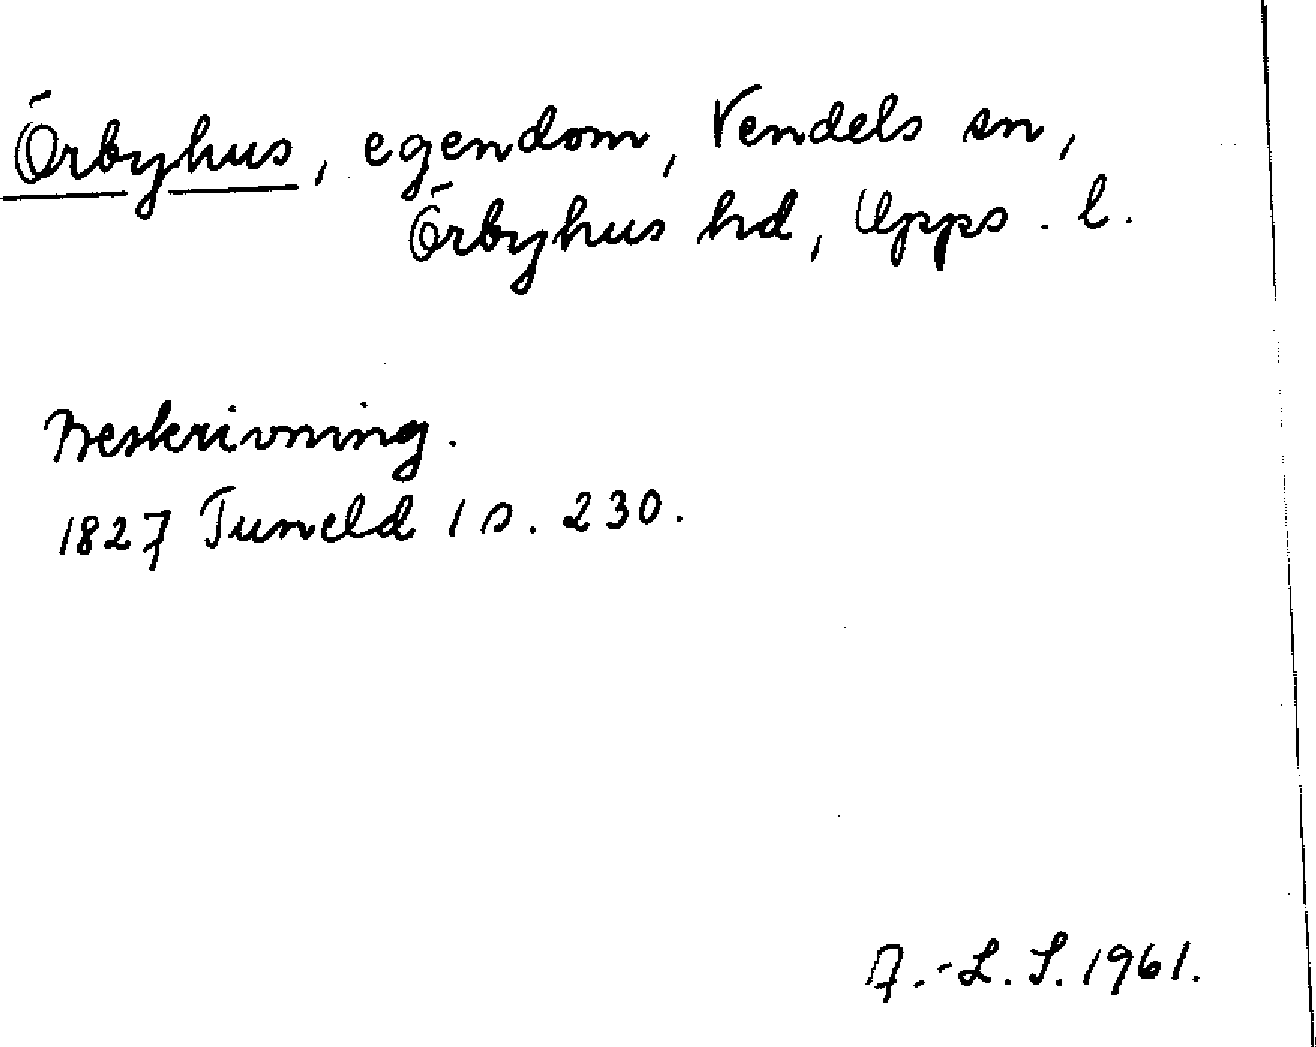 Örbyhus, egendom, Vendels sn,
Örbyhus hd, Upps. l.
Beskrivning.
1827 Tuneld 1 s. 230.
A.-L. S. 1961.